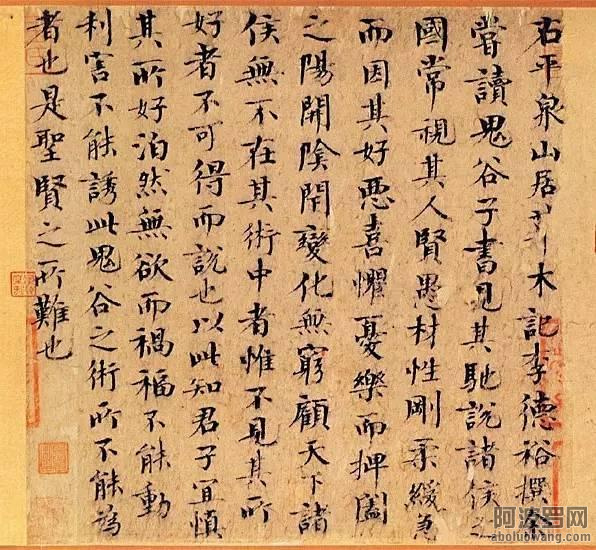 右平泉山居草木記李德裕撰余
嘗讀鬼谷子書見其馳說諸侯之
國常視其人賢愚材性剛柔緩急
而因其好惡喜懼憂樂而捭闔
之陽開陰閉變化無窮顧天下諸
侯無不在其術中者惟不見其所
好者不可得而說也以此知君子宜慎
其所好泊然無欲而禍福不能動
利害不能誘此鬼谷之術所不能為
者也是聖賢之所難也
阿波罗网
aboluowang.com